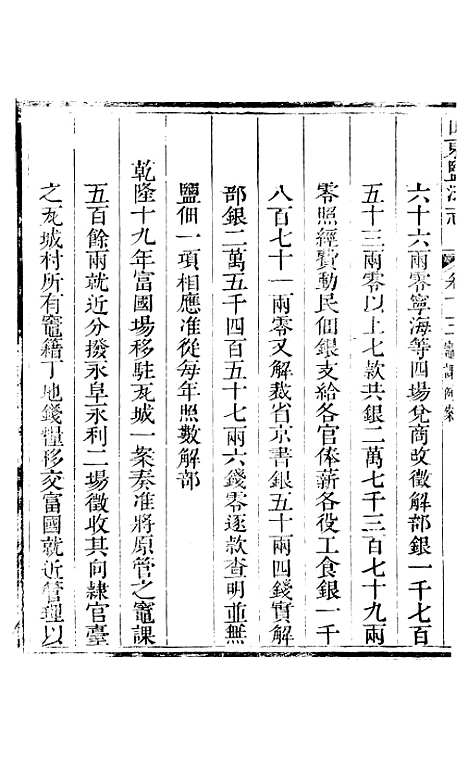 山東鹽法志 卷十三 竈課例案
六十六兩零寧海等四場兌商改徵解部銀一千七百
五十三兩零以上七款共銀二萬七千三百七十九兩
零照經費動民佃銀支給各官俸薪各役工食銀一千
八百七十一兩零又解裁省京書銀五十兩四錢實解
部銀二萬五千四百五十七兩六錢零逐款查明並無
鹽佃一項相應准從每年照數解部
乾隆十九年富國場移駐瓦城一案奏准將原管之竈課
五百餘兩就近分撥永阜永利二場徵收其向隸官臺
之瓦城村所有竈籍丁地錢糧移交富國就近管理以